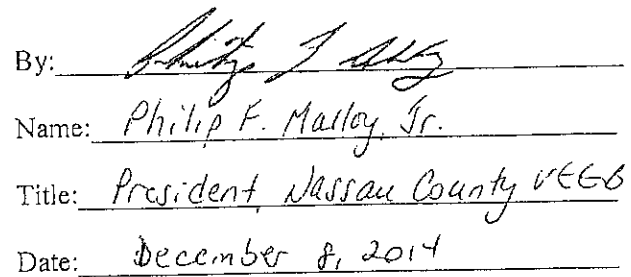 By:
Name: Philip F. Malloy, Jr.
Title: President, Nassau County VEEB
Date: December 8, 2014